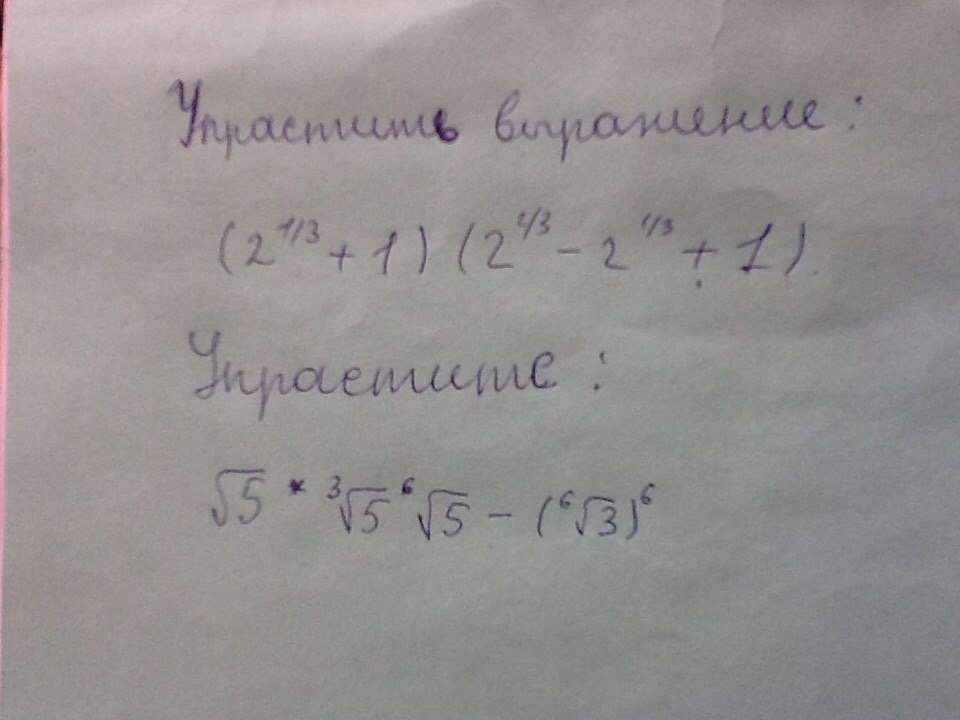 Упрастить выражение:
(2^1/3 + 1) (2^2/3 - 2^1/3 + 1).
Упрастите:
√5 * ³√5 ⁶√5 - (⁶√3)⁶